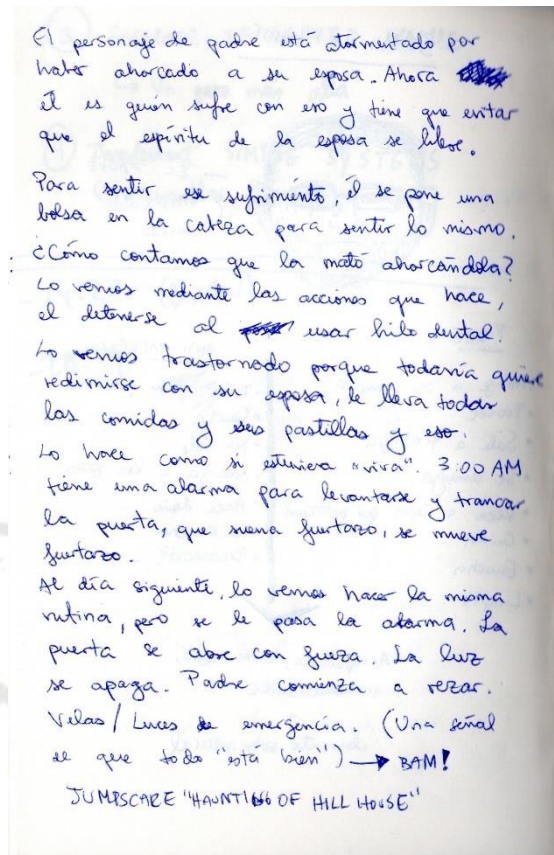 El personaje de padre está atormentado por
haber ahorcado a su esposa. Ahora
él es quien sufre con eso y tiene que evitar
que el espíritu de la esposa se libere.
Para sentir ese sufrimiento, él se pone una
bolsa en la cabeza para sentir lo mismo.
¿Cómo contamos que la mató ahorcándola?
Lo vemos mediante las acciones que hace,
el detenerse al usar hilo dental.
Lo vemos trastornado porque todavía quiere
redimirse con su esposa, le lleva todas
las comidas y sus pastillas y eso.
Lo hace como si estuviera "viva". 3:00 AM
tiene una alarma para levantarse y trancar
la puerta, que suena fuertazo, se mueve
fuertazo.
Al día siguiente, lo vemos hacer la misma
rutina, pero se le pasa la alarma. La
puerta se abre con fuerza. La luz
se apaga. Padre comienza a rezar.
Velas / Luces de emergencia. (Una señal
de que todo "está bien") → BAM!
JUMPSCARE "HAUNTING OF HILL HOUSE"